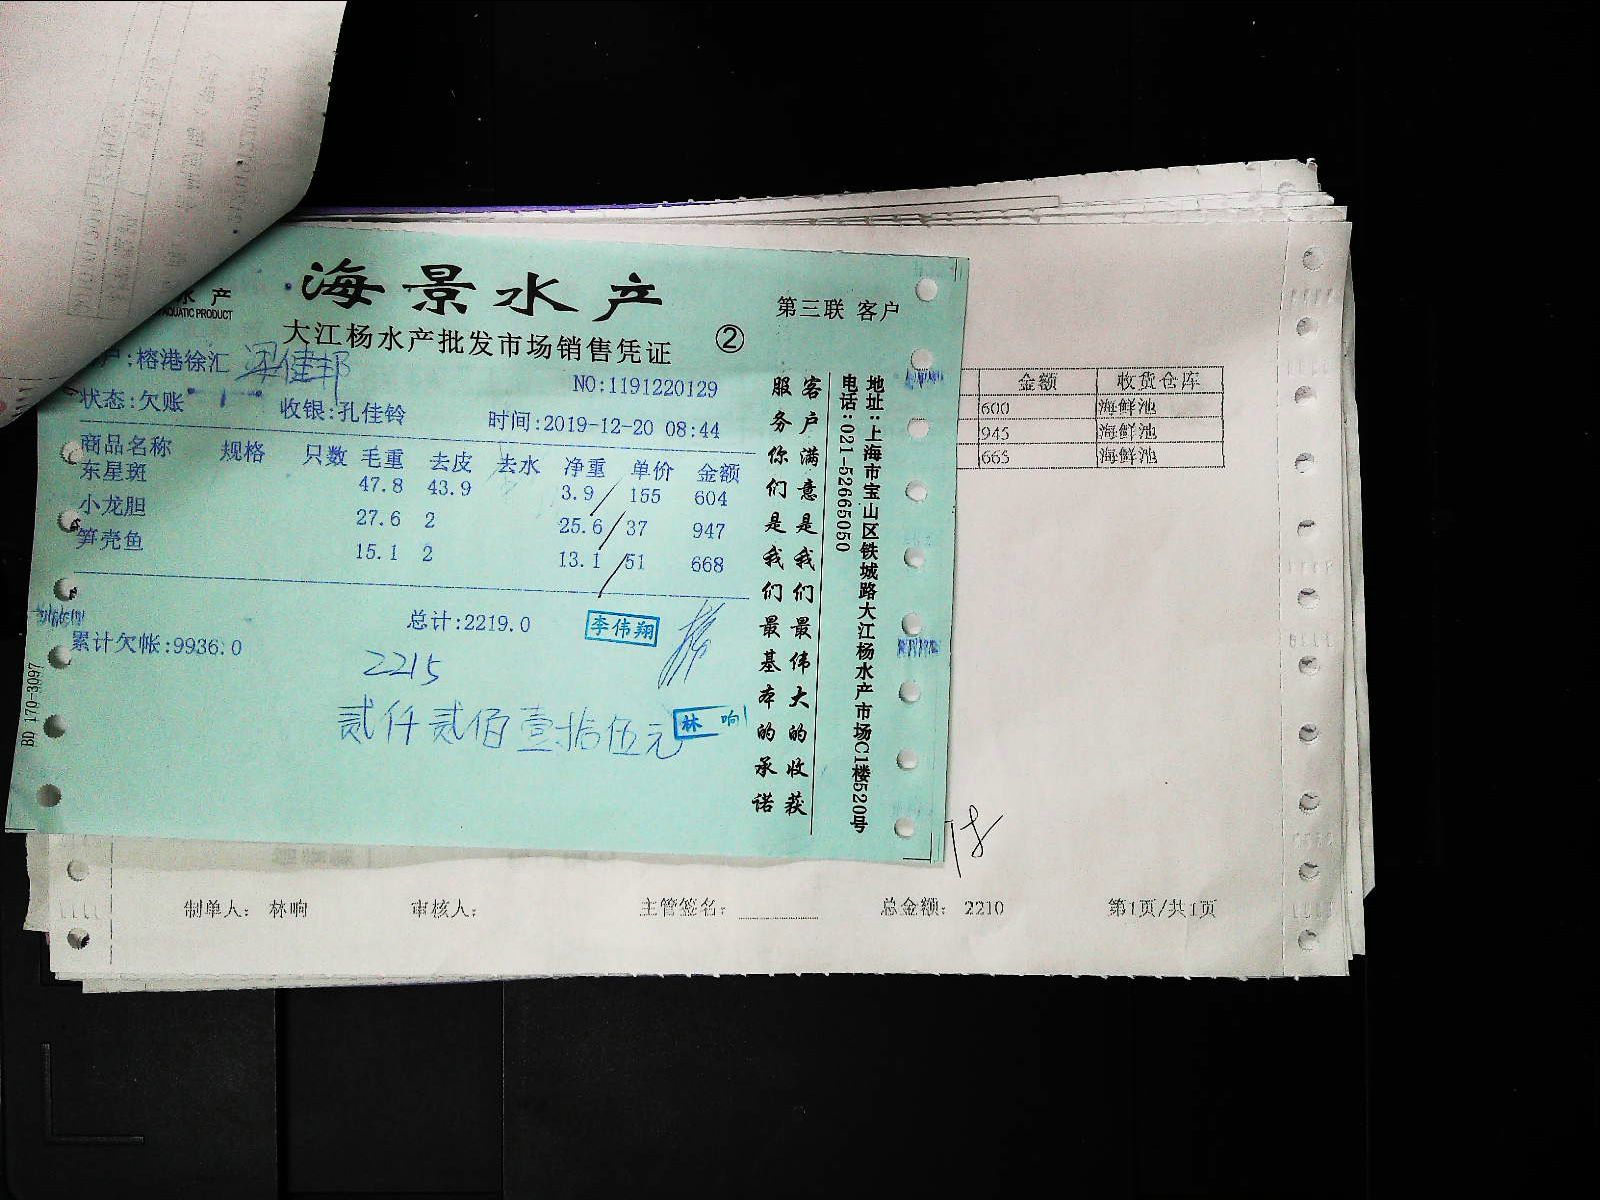 海景水产
水产
AQUATIC PRODUCT
大江杨水产批发市场销售凭证
②
第三联 客户
户:榕港徐汇 梁健邦
NO:1191220129
状态:欠账
收银:孔佳铃
时间:2019-12-20 08:44
商品名称 规格 只数 毛重 去皮 去水 净重 单价 金额
东星斑 47.8 43.9 3.9 155 604
小龙胆 27.6 2 25.6 37 947
笋壳鱼 15.1 2 13.1 51 668
总计:2219.0
李伟翔
累计欠帐:9936.0
2215
贰仟贰佰壹拾伍元
林响
BD 170-3097
客户满意是我们最伟大的收获
服务你们是我们最基本的承诺
地址:上海市宝山区铁城路大江杨水产市场C1楼520号
电话:021-52665050
金额 收货仓库
600 海鲜池
945 海鲜池
665 海鲜池
制单人: 林响
审核人:
主管签名:
总金额: 2210
第1页/共1页